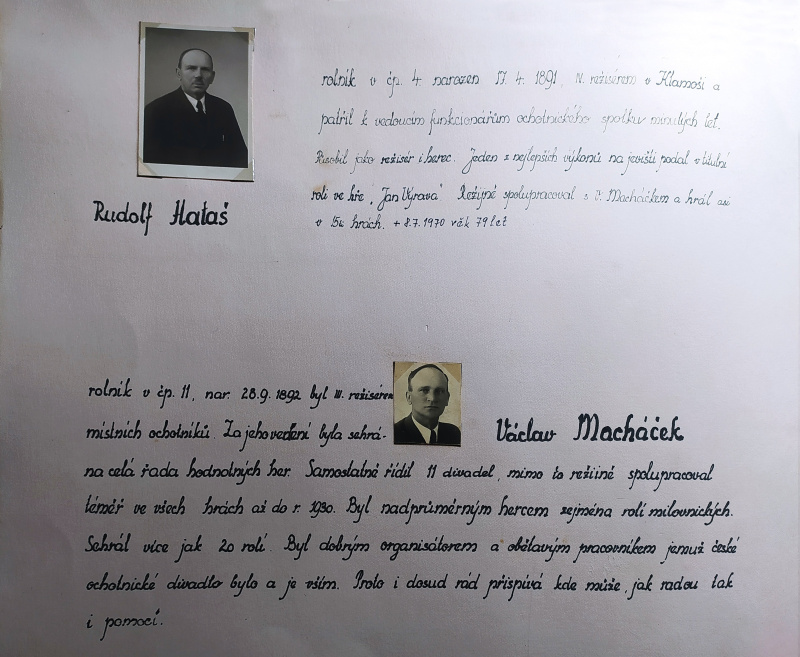 rolník v čp. 4. narozen 17. 4. 1891, IV. režisérem v Klamoši a
patřil k vedoucím funkcionářům ochotnického spolku minulých let.
Působil jako režisér i herec. Jeden z nejlepších výkonů na jevišti podal v titulní
roli ve hře "Jan Výrava" Režijně spolupracoval s V. Macháčkem a hrál asi
v 15ti hrách. + 8.7.1970 věk 79 let
Rudolf Hataš
rolník v čp. 11, nar. 28.9. 1892 byl III. režisérem
místních ochotníků. Za jeho vedení byla sehrá-
na celá řada hodnotných her. Samostatně řídil 11 divadel, mimo to režijně spolupracoval
téměř ve všech hrách až do r. 1930. Byl nadprůměrným hercem zejména rolí milovnických.
Sehrál více jak 20 rolí. Byl dobrým organisátorem a obětavým pracovníkem jemuž české
ochotnické divadlo bylo a je vším. Proto i dosud rád přispívá kde může, jak radou tak
i pomocí.
Václav Macháček